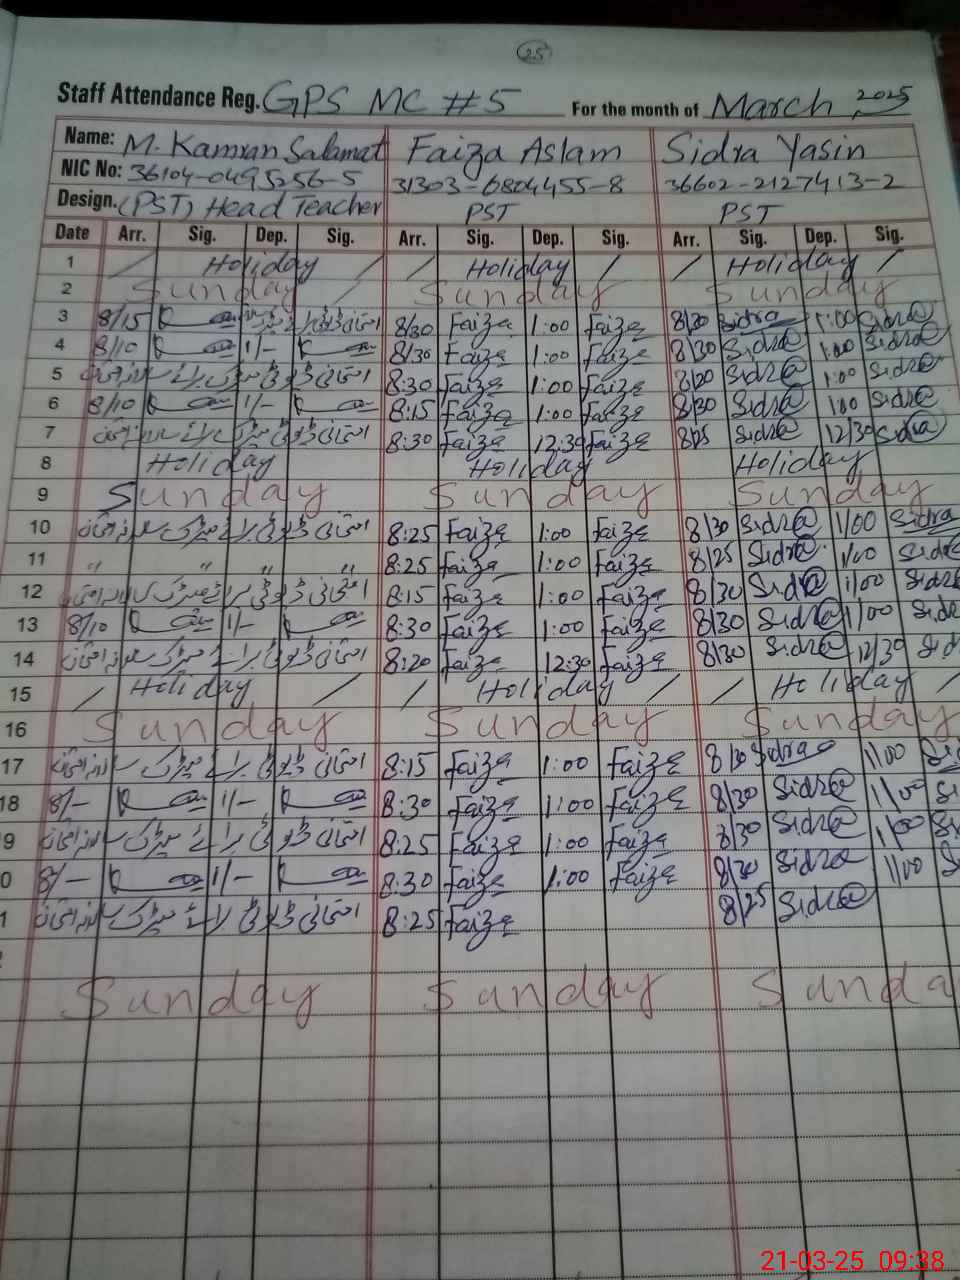 25
Staff Attendance Reg. GPS MC #5 For the month of March, 2025
Name: M. Kamran Salamat Faiza Aslam Sidra Yasin
NIC No: 36104-0495256-5 31303-6804455-8 36602-2127413-2
Design. (PST) Head Teacher PST PST
Date Arr. Sig. Dep. Sig. Arr. Sig. Dep. Sig. Arr. Sig. Dep. Sig.
1 Holiday Holiday Holiday
2 Sunday Sunday Sunday
3 8/15 8/30 Faiza 1:00 Faiza 8/30 Sidra 1:00 Sidra
4 8/10 1/- 8/30 Faiza 1:00 Faiza 8/30 Sidra 1:00 Sidra
5 امتحانی ڈیوٹی برائے میٹرک 8:30 Faiza 1:00 Faiza 8/30 Sidra 1:00 Sidra
6 8/10 1/- 8:15 Faiza 1:00 Faiza 8/30 Sidra 1:00 Sidra
7 امتحانی ڈیوٹی برائے میٹرک 8:30 Faiza 12:30 Faiza 8/25 Sidra 12/30 Sidra
8 Holiday Holiday Holiday
9 Sunday Sunday Sunday
10 امتحانی ڈیوٹی برائے میٹرک 8:25 Faiza 1:00 Faiza 8/30 Sidra 1/00 Sidra
11 " " " " 8:25 Faiza 1:00 Faiza 8/25 Sidra 1/00 Sidra
12 امتحانی ڈیوٹی برائے میٹرک 8:15 Faiza 1:00 Faiza 8/30 Sidra 1/00 Sidra
13 8/10 1/- 8:30 Faiza 1:00 Faiza 8/30 Sidra 1/00 Sidra
14 امتحانی ڈیوٹی برائے میٹرک 8:20 Faiza 12:30 Faiza 8/30 Sidra 12/30 Sid
15 Holiday Holiday Holiday
16 Sunday Sunday Sunday
17 امتحانی ڈیوٹی برائے میٹرک 8:15 Faiza 1:00 Faiza 8/30 Sidra 1/00 Sid
18 8/- 1/- 8:30 Faiza 1:00 Faiza 8/30 Sidra 1/00 Si
9 امتحانی ڈیوٹی برائے میٹرک 8:25 Faiza 1:00 Faiza 8/30 Sidra 1/00 Si
0 8/- 1/- 8:30 Faiza 1:00 Faiza 8/30 Sidra 1/00 S
1 امتحانی ڈیوٹی برائے میٹرک 8:25 Faiza 8/25 Sidra
Sunday Sunday Sunda
21-03-25 09:38